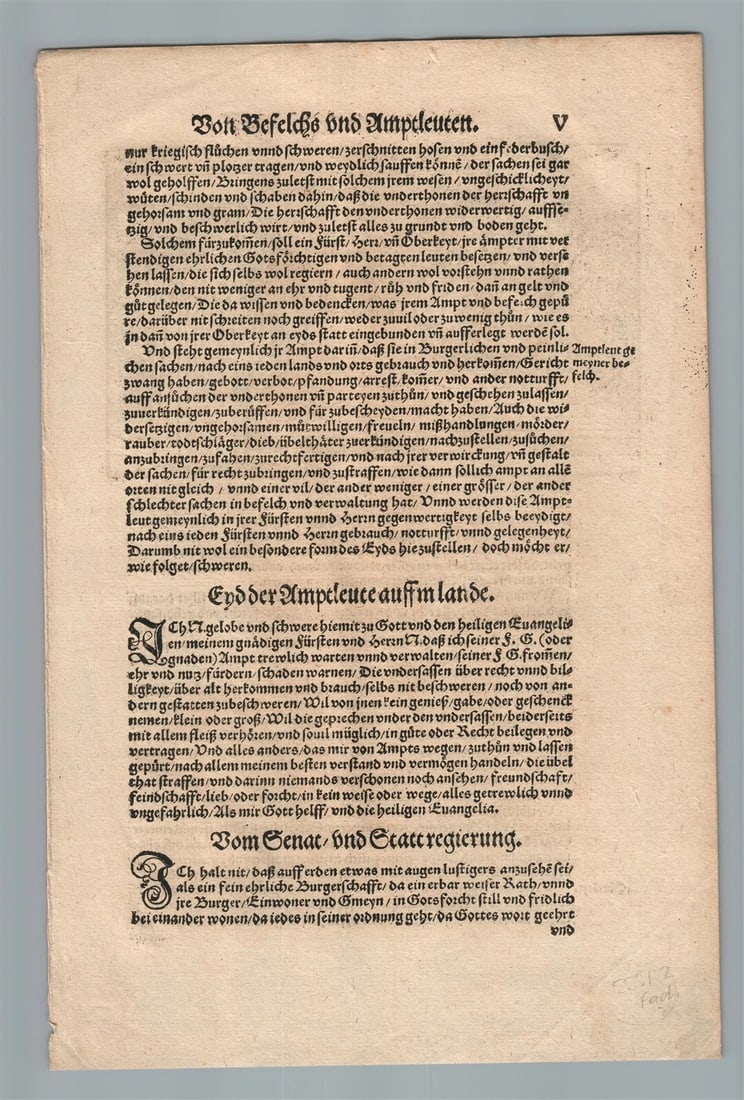 Von Befelchs vnd Amptleuten. V
nur kriegisch flüchen vnnd schweren/zerschnitten hosen vnd ein federbusch/
ein schwert vñ plotzer tragen/vnd weydlich sauffen könnē/der sachen sei gar
wol geholffen/Bringens zuletst mit solchem jrem wesen/vngeschicklicheyt/
wüten/schinden vnd schaben dahin/daß die vnderthonen der herrschafft vn
gehorsam vnd gram/Die herrschafft den vnderthonen widerwertig/auffse-
tzig/vnd beschwerlich wirt/vnd zuletst alles zu grundt vnd boden geht.
Solchem fürzukom̃en/soll ein Fürst/Herr/vñ Oberkeyt/jre ämpter mit ver
stendigen ehrlichen Gotsförchtigen vnd betagten leuten besetzen/vnd verse
hen lassen/die sich selbs wol regiern/auch andern wol vorstehn vnnd rathen
können/den nit weniger an ehr vnd tugent/rüh vnd friden/dañ an gelt vnd
güt gelegen/Die da wissen vnd bedencken/was jrem Ampt vnd befelch gepü
re/darüber nit schreiten noch greiffen/weder zuuil oder zu wenig thün/wie es
jn dañ von jrer Oberkeyt an eyds statt eingebunden vñ aufferlegt werdē sol.
Vnd steht gemeynlich jr Ampt dariñ/daß sie in Burgerlichen vnd peinli-
chen sachen/nach eins ieden lands vnd orts gebrauch vnd herkom̃en/Gericht
zwang haben/gebott/verbot/pfandung/arrest/kom̃er/vnd ander notturfft/
auff ansüchen der vnderthonen vñ parteyen zuthün/vnd geschehen zulassen/
zuuerkündigen/zuberüffen/vnd für zubescheyden/macht haben/Auch die wi-
dersetzigen/vngehorsamen/mütwilligen/freueln/mißhandlungen/mörder/
rauber/todtschläger/dieb/übelthäter zuerkündigen/nachzustellen/zusüchen/
anzubringen/zufahen/zurechtfertigen/vnd nach jrer verwirckung/vñ gestalt
der sachen/für recht zubringen/vnd zustraffen/wie dann söllich ampt an allē
orten nit gleich/vnnd einer vil/der ander weniger/einer grösser/der ander
schlechter sachen in befelch vnd verwaltung hat/Vnnd werden dise Ampt-
leut gemeynlich in jrer Fürsten vnnd Herrn gegenwertigkeyt selbs beeydigt/
nach eins ieden Fürsten vnnd Herrn gebrauch/notturfft vnnd gelegenheyt/
Darumb nit wol ein besondere form des Eyds hie zustellen/doch möcht er/
wie folget/schweren.
Amptleut ge
meyner be-
felch.
Eyd der Amptleute auffm lande.
ICh N. gelobe vnd schwere hiemit zu Gott vnd den heiligen Euangeli-
en/meinem gnädigen Fürsten vnd Herrn N. daß ich seiner F. G. (oder
gnaden) Ampt trewlich warten vnnd verwalten/seiner F G. from̃en/
ehr vnd nutz/fürdern/schaden warnen/Die vndersassen über recht vnnd bil-
ligkeyt/über alt herkommen vnd brauch/selbs nit beschweren/noch von an-
dern gestatten zubeschweren/Wil von jnen kein genieß/gabe/oder geschenck
nemen/klein oder groß/Wil die geprechen vnder den vndersassen/beiderseits
mit allem fleiß verhören/vnd souil müglich/in güte oder Recht beilegen vnd
vertragen/Vnd alles anders/das mir von Ampts wegen/zuthün vnd lassen
gepürt/nach allem meinem besten verstand vnd vermögen handeln/die übel
that straffen/vnd darinn niemands verschonen noch ansehen/freundschaft/
feindschafft/lieb/oder forcht/in kein weise oder wege/alles getrewlich vnnd
vngefahrlich/Als mir Gott helff/vnd die heiligen Euangelia.
Vom Senat/vnd Stattregierung.
ICh halt nit/daß auff erden etwas mit augen lustigers anzusehē sei/
als ein fein ehrliche Burgerschafft/da ein erbar weiser Rath/vnnd
jre Burger/Einwoner vnd Gmeyn/in Gotsforcht still vnd fridlich
bei einander wonen/da iedes in seiner ordnung geht/da Gottes wort geehrt
vnd